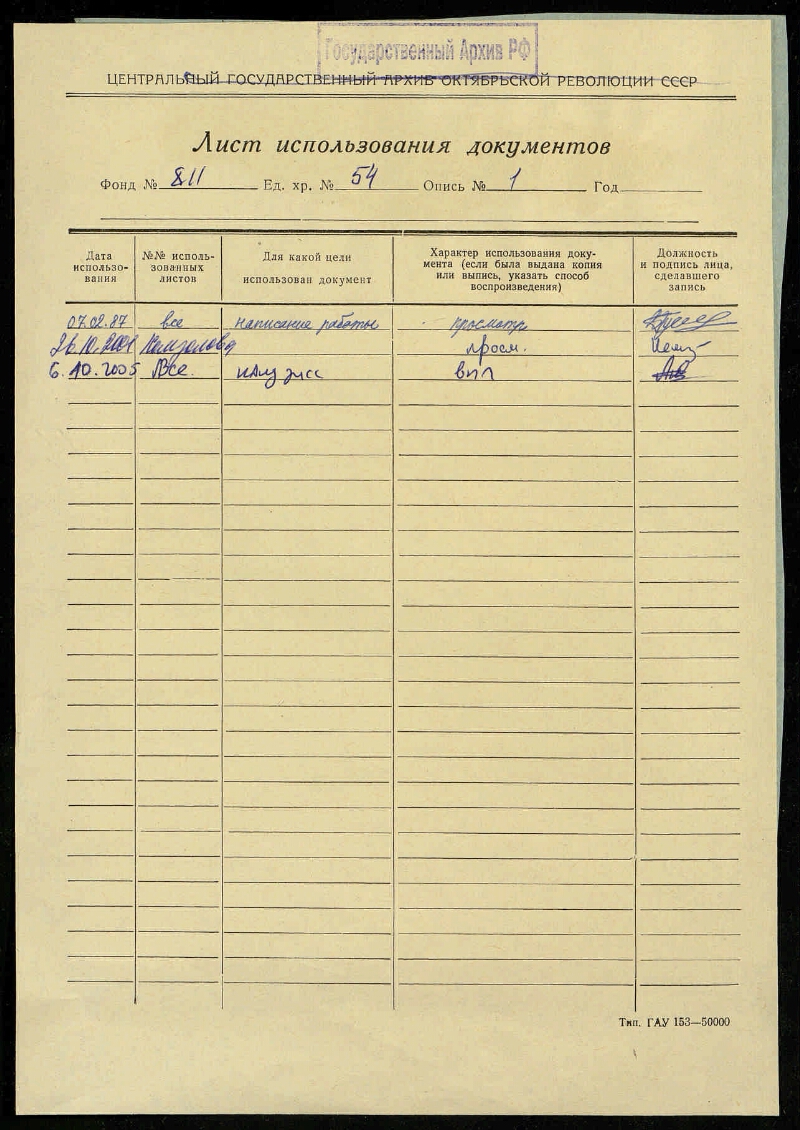 Государственный Архив РФ
ЦЕНТРАЛЬНЫЙ ГОСУДАРСТВЕННЫЙ АРХИВ ОКТЯБРЬСКОЙ РЕВОЛЮЦИИ СССР
Лист использования документов
Фонд № 811 Ед. хр. № 54 Опись № 1 Год
Дата использо-вания
№№ исполь-зованных листов
Для какой цели использован документ
Характер использования доку-мента (если была выдана копия или выпись, указать способ воспроизведения)
Должность и подпись лица, сделавшего запись
07.02.87 все написание работы просмотр
26.10.2001 просм.
6.10.2005 Все.
Тип. ГАУ 153—50000